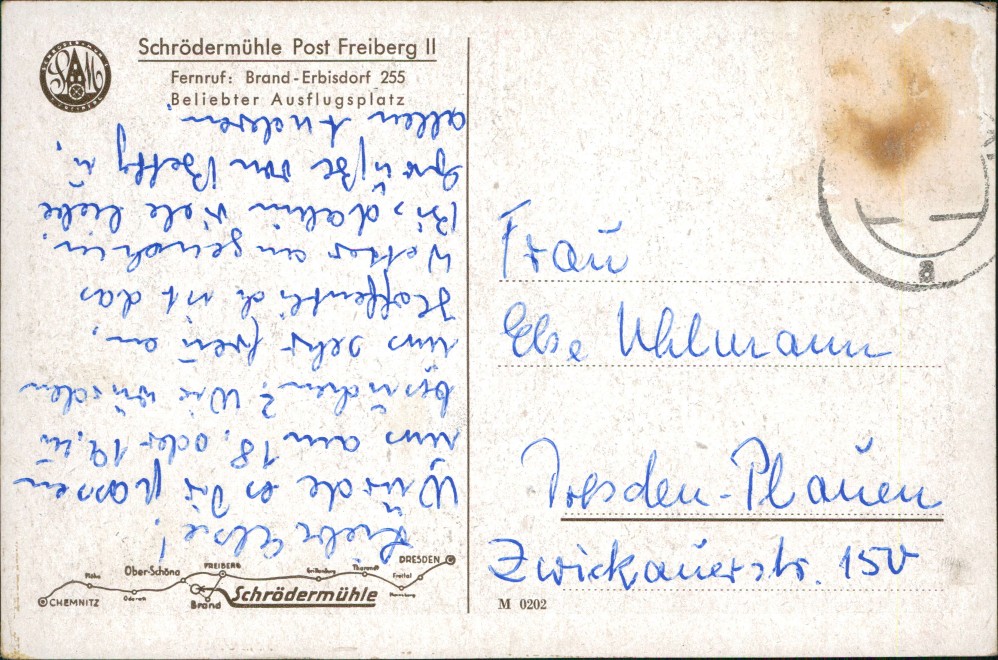 Schrödermühle Post Freiberg II
Fernruf: Brand-Erbisdorf 255
Beliebter Ausflugsplatz
Liebe Else!
Würde es Dir passen
uns am 18. oder 19. zu
besuchen? Wir würden
uns sehr freuen,
Hoffentlich ist das
Wetter angenehm.
Bis dahin viele liebe
Grüße von Betty u.
allen Anderen
Frau
Else Uhlmann
Dresden-Plauen
Zwickauerstr. 150
a
CHEMNITZ
Flöha
Oederan
Ober-Schöna
FREIBERG
Brand
Schrödermühle
Tharandt
Freital
DRESDEN
M 0202